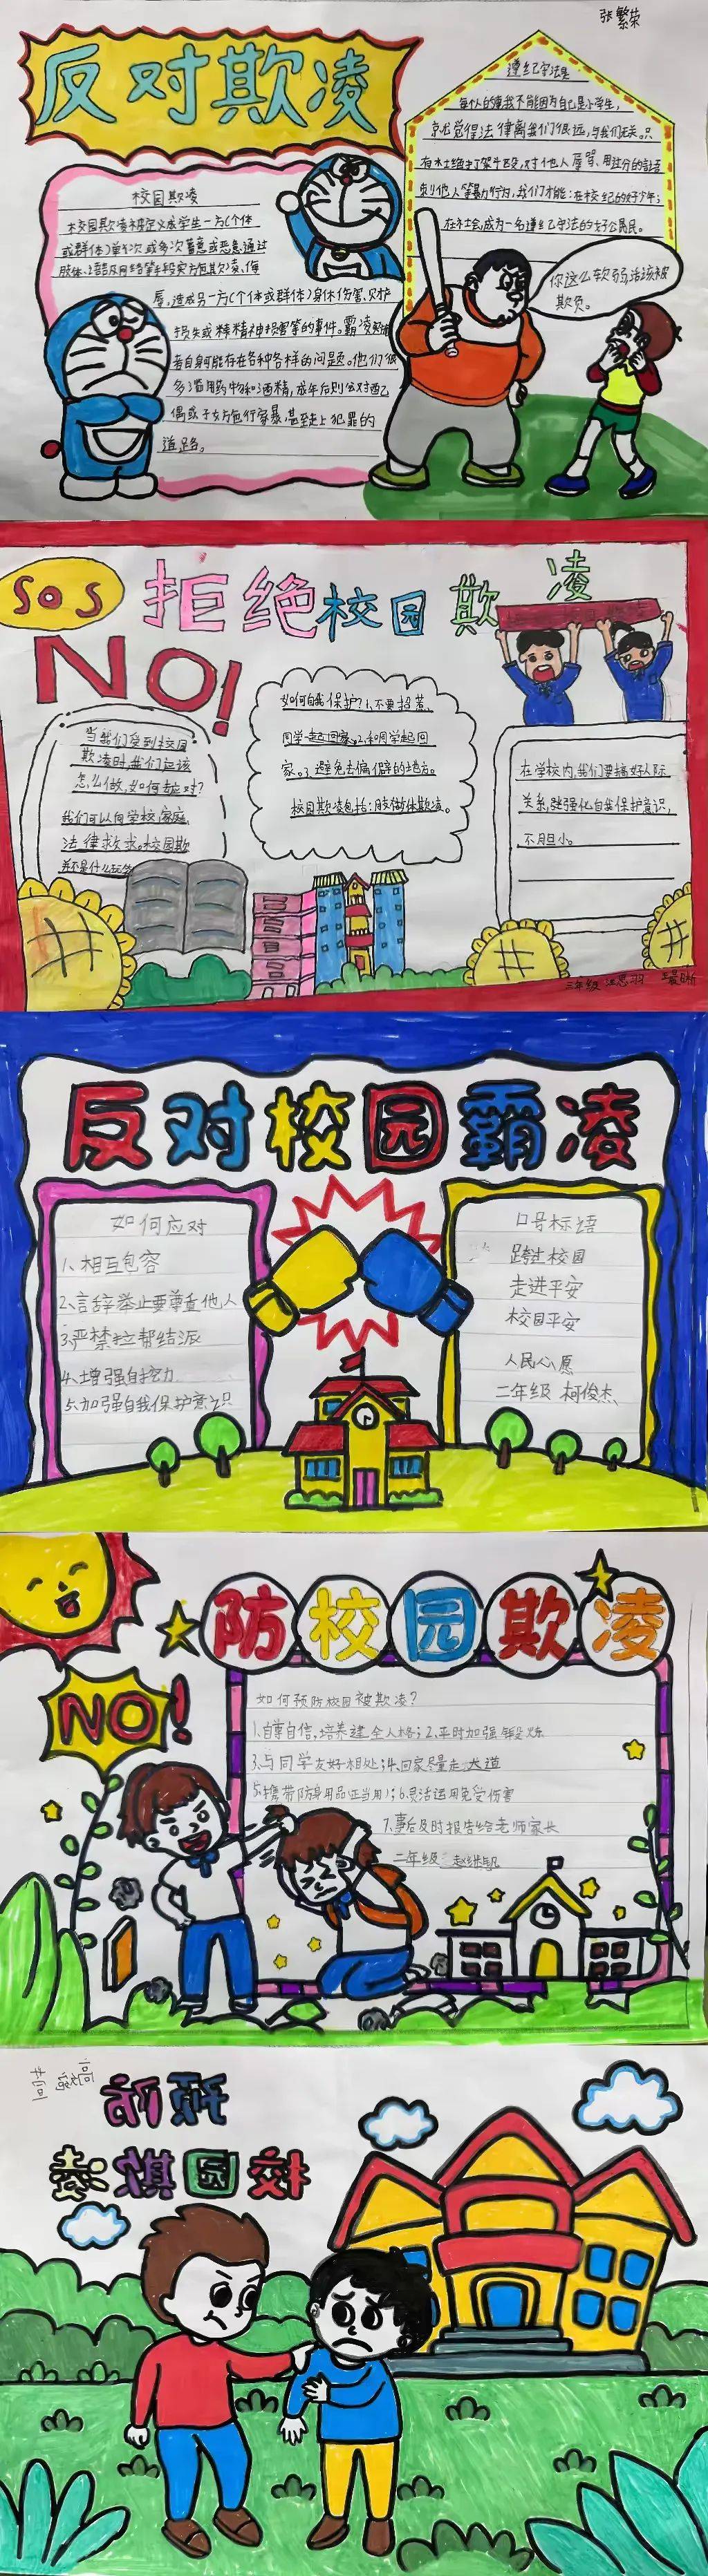 张繁荣
反对欺凌
遵纪守法是
每个人的事我不能因为自己是小学生,
就觉得法律离我们很远,与我们无关。只
在社会,成为一名遵纪守法的好公民。
校园欺凌
校园欺凌被定义为学生一方(个体
或群体)单次或多次蓄意或恶意通过
肢体、语言及网络等手段实施欺凌、侮
辱,造成另一方(个体或群体)身体伤害、财产
损失或精神损害等的事件。霸凌
者自身可能存在各种各样的问题。他们很
多滥用药物和酒精,成年后则会对配
偶或子女施行家暴甚至走上犯罪的
道路。
你这么软弱,活该被
欺负。
SOS
拒绝校园欺凌
NO!
当我们受到校园
欺凌时,我们应该
怎么做,如何应对?
我们可以向学校家庭
法律求救。校园欺
并不是什么玩
如何自我保护?1、不要招惹
同学 2、和同学起回
家。3、避免去偏僻的地方。
校园欺凌包括:肢体欺凌。
在学校内,我们要搞好人际
关系,强化自我保护意识,
不胆小。
三年级 汪思羽
反对校园霸凌
如何应对
1、相互包容
2、言辞举止要尊重他人
3、严禁拉帮结派
4、增强自控力
5、加强自我保护意识
口号标语
跨过校园
走进平安
校园平安
人民心愿
二年级 柯俊杰
防校园欺凌
NO!
如何预防校园被欺凌?
1.自尊自信,培养建全人格;2.平时加强锻炼
3.与同学友好相处;4.回家尽量走大道
5.携带防身用品(正当用);6.灵活运用免受伤害
7.事后及时报告给老师家长
二年级
预防
校园欺凌